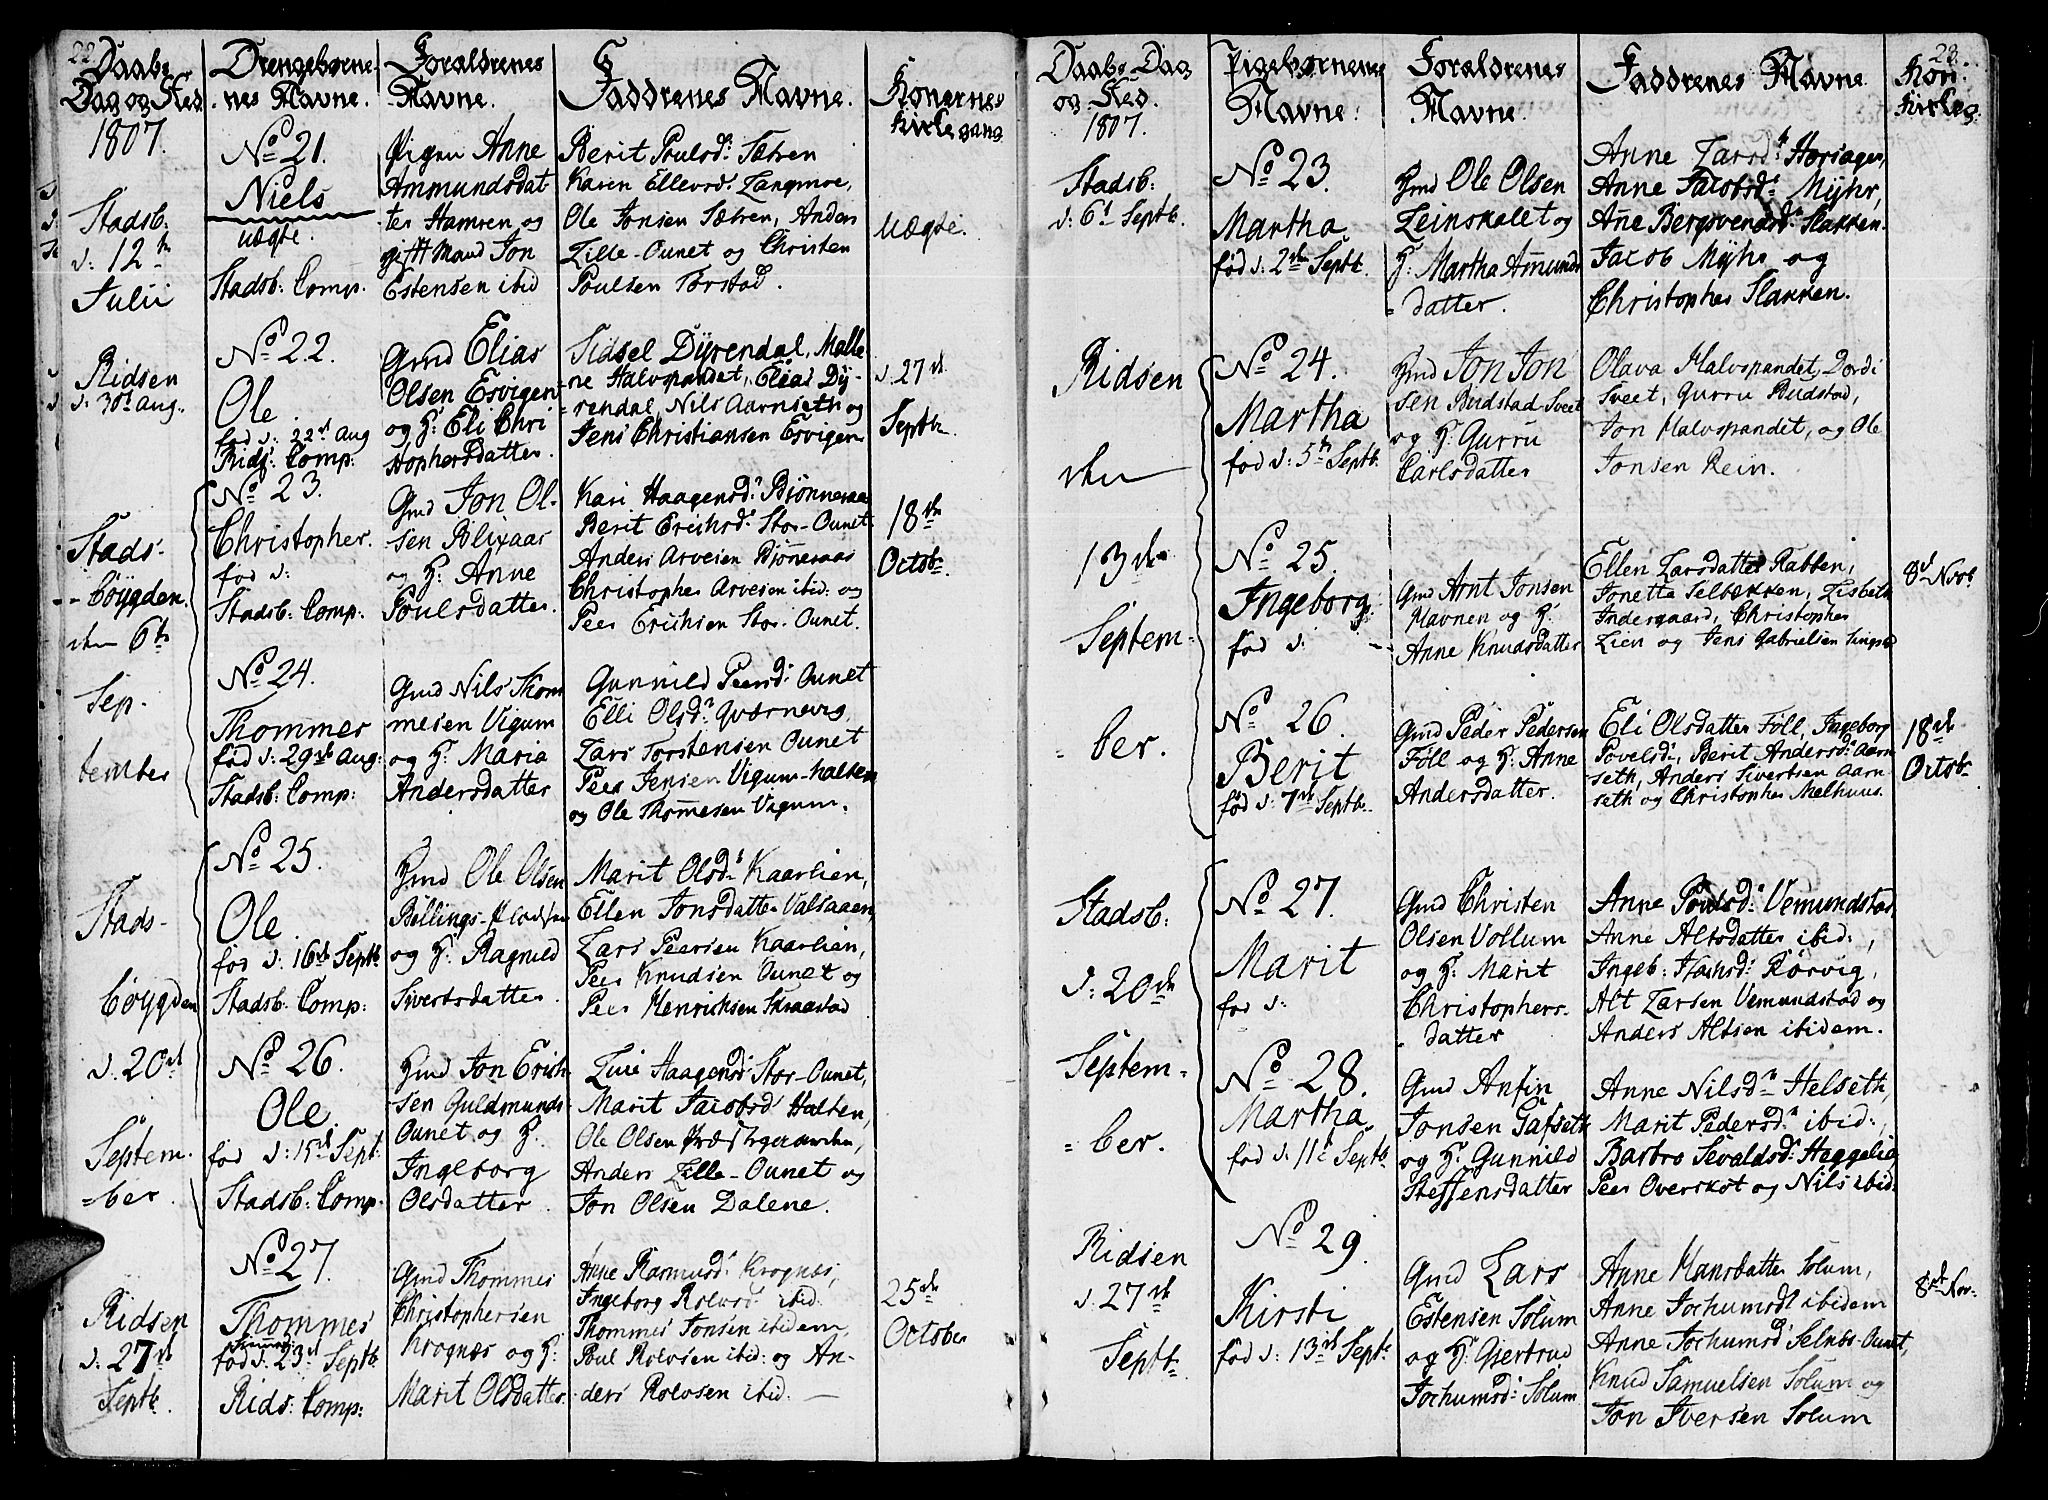 22.
Daabs
Dag og Sted
1807.
Drengebørne-
nes Navne.
Forældrenes
Navne.
Faddrenes Navne.
Konernes
Kirkegang
Stadsb:
d: 12te
Julii
No 21.
Niels
uægte.
Stadsb: Comp.
Pigen Anne
Ammundsdat
ter Hamren og
gift Mand Jon
Estensen ibid
Berit Poulsd: Sætren
Karen Ellevsd: Langmoe,
Ole Jonsen Sætren, Anders
Lille-Ounet og Christen
Poulsen Tørstad.
Uægte.
Ridsen
d: 30t Aug.
No 22.
Ole
fød d: 22d Aug
Rids: Comp:
Gmd Elias
Olsen Esvigen
og H: Eli Chri
stophersdatter.
Sidsel Dyrendal, Malle
ne Halvspandet, Elias Dy-
rendal, Nils Aarnseth og
Jens Christiansen Esvigen
d. 27d.
Septb.
Stads-
-bøygden
den 6te
Sep-
tember
No 23.
Christopher.
fød d:
Stadsb: Comp:
Gmd Jon Ol-
sen Blixaas
og H: Anne
Poulsdatter.
Kari Haagensd: Biønneraas
Berit Erichsd: Stor-Ounet
Anders Arvesen Biønneraas
Christopher Arvesen ibid: og
Peer Erichsen Stor-Ounet.
18de
Octobr.
No 24.
Thommes
fød d: 29de Aug:
Stadsb: Comp:
Gmd Nils Thom
mesen Vigum
og H: Maria
Andersdatter
Gunnild Peersd: Ounet
Elli Olsd: Qværnevig,
Lars Torstensen Ounet
Peer Jensen Vigum-halten
og Ole Thommesen Vigum.
Stads-
bøygden
d. 20d
Septem-
-ber.
No 25.
Ole
fød d. 16de Septb
Stadsb: Comp:
Gmd Ole Olsen
Billings-
og H: Ragnild
Sivertsdatter.
Marit Olsd: Kaarlien,
Ellen Jonsdatter Valsaaen,
Lars Peersen Kaarlien,
Peer Knudsen Ounet og
Peer Henrichsen Skraastad
No 26.
Ole
fød d: 15de Sept:
Stadsb: Comp.
Gmd Jon Erich
sen Guldmunds
Ounet og H.
Ingeborg
Olsdatter.
Live Haagensd: Stor-Ounet,
Marit Jacobsd Halten,
Ole Olsen Præstgaarden,
Anders Lille-Ounet og
Jon Olsen Dalene.
Ridsen
d: 27d
Septb.
No 27.
Thommes
fød d. 23d Septb
Rids: Comp:
Gmd Thommes
Christophersen
Krognæs og H:
Marit Olsdatter.
Anne Rasmusd: Krognæs,
Ingeborg Rolvsd: ibid:
Thommes Jonsen ibidem,
Poul Rolvsen ibid: og An-
ders Rolvsen ibid.
25de
October
28.
Daabs Dag
og Sted.
1807.
Pigebørnenes
Navne.
Forældrenes
Navne.
Faddrenes Navne
Kon:
Kirkeg:
Stadsb:
d: 6t Septb.
No 23.
Martha
fød d: 2de Septb.
Gmd Ole Olsen
Leinskalet og
H: Martha Amunds
-datter.
Anne Larsd: Horsager,
Anne Jacobsd: Myhr,
Ane Bergsvensd: Slakken.
Jacob Myhr og
Christopher Slakken.
Ridsen
den
13de
Septem-
-ber.
No 24.
Martha
fød d: 5te Septb.
Gmd Jon Jon
sen Rudstad Sveet
og H: Gurru
Carlsdatter
Olava Halvspandet, Dordi
Sveet, Gurru Rudstad,
Jon Halvspandet, og Ole
Jonsen Rein.
No 25.
Ingeborg.
fød d:
Gmd Arnt Jonsen
Havnen og H:
Anne Knudsdatter
Ellen Larsdatter Rabben,
Jonetta Selbækken, Lisbeth
Indergaard, Christopher
Lien og Jens Gabrielsen Singstad
8d Novb
No 26.
Berit
fød d: 7de Septb.
Gmd Peder Pedersen
Föll og H: Anne
Andersdatter.
Eli Olsdatter Föll, Ingeborg
Povelsd:, Berit Andersd: Aarn
seth, Anders Sivertsen Aarn
seth og Christopher Melhuus.
18de
Octobr
Stadsb:
d: 20de
Septem-
-ber.
No 27.
Marit
fød d:
Gmd Christen
Olsen Vollum
og H: Marit
Christophers-
datter
Anne Poulsd: Vemundstad,
Anne Altsdatter ibid:,
Ingeb: Isachsd: Rørvig,
Alt Larsen Vemundstad og
Anders Altsen ibidem.
No 28.
Martha
fød d: 11t Septb.
Gmd Anfin
Jonsen Gafseth
og H: Gunnild
Steffensdatter
Anne Nilsd: Helseth,
Marit Pedersd: ibid:,
Barbro Sevaldsd: Heggelie,
Peer Overskot og Nils ibid:
Ridsen
d. 27d
Septb.
No 29.
Kirsti
fød d: 13de Septb.
Gmd Lars
Estensen Solum
og H: Giertrud
Jochumsd: Solum
Anne Hansdatter Solum,
Anne Jochumsd: ibidem
Anne Jochumsd: Selnes-Ounet,
Knud Samuelsen Solum og
Jon Iversen Solum
8de Nov.